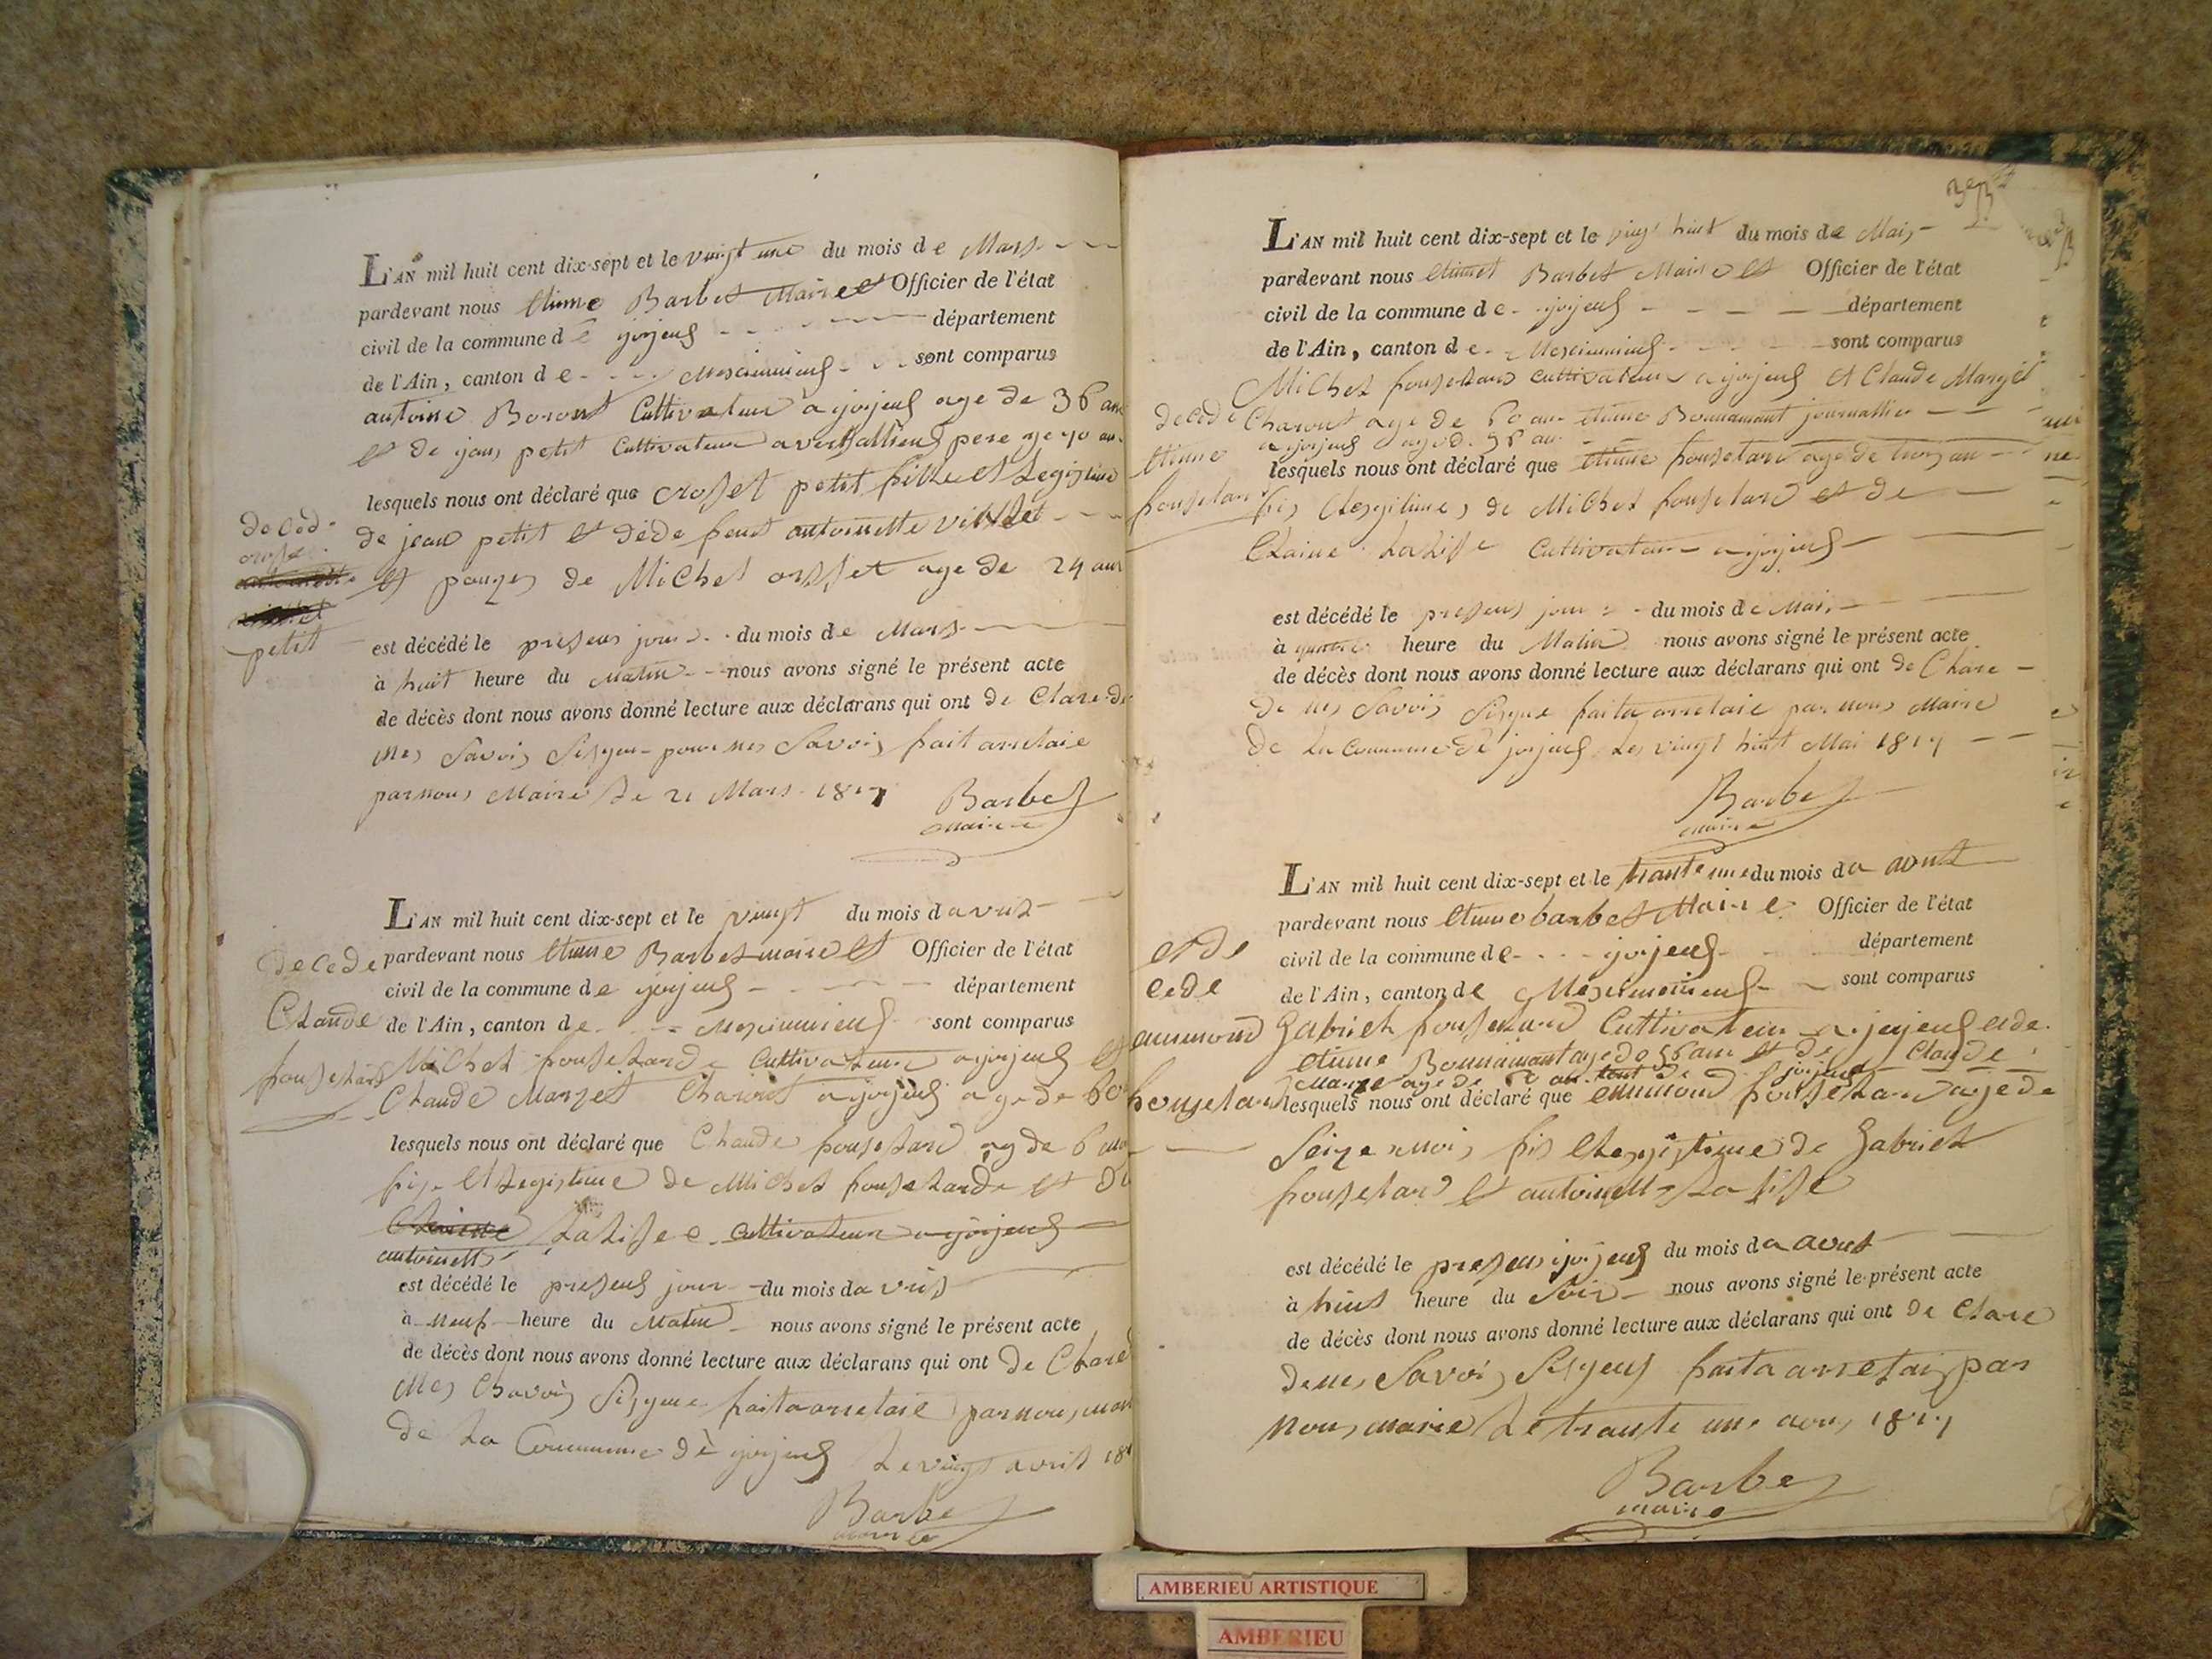 L'AN mil huit cent dix-sept et le vingt une du mois de Mars
pardevant nous etiene Barbet Maire et Officier de l'état
civil de la commune de joyjeux département
de l'Ain, canton de Meximieux sont comparus
antoine Boront Cultivateur a joyjeux age de 36 ans
et de jean petit Cultivateur a versallieux pere age 70 an
lesquels nous ont déclaré que croset petit fille et Legistime
de jean petit et dede feut antoinette
et pouzes de Michel orsset age de 24 ans
est décédé le presens jour du mois de Mars
à huit heure du Matin nous avons signé le présent acte
de décès dont nous avons donné lecture aux déclarans qui ont de Clare de
nes Savoir Sisgner pour nes Savois fait arretaie
par nous Maire Le 21 Mars 1817 Barbet
maire
deced
petit
L'AN mil huit cent dix-sept et le vingt du mois d avril
pardevant nous etiene Barbet maire et Officier de l'état
civil de la commune de joyjeux département
de l'Ain, canton de Meximieux sont comparus
Michel fouselarde cultivateur a joyjeux et
Claude Marget Charvet a joyjeux age de 60
lesquels nous ont déclaré que Claude fouselard ag de 6 ans
fis et Legistime de Michel fouselarde et de
Lalise cultivateur a joyjeux
antoinette
est décédé le presens jour du mois d avril
à neuf heure du Matin nous avons signé le présent acte
de décès dont nous avons donné lecture aux déclarans qui ont de Clare
nes Savoir Sisgner fait a arretaie par nous mair
de La Commune de joyjeux Le vingt avril 18
Barbet
maire
decede
Claude
fouselard
L'AN mil huit cent dix-sept et le vingt huit du mois de Mai
pardevant nous etienet Barbet Maire et Officier de l'état
civil de la commune de joyjeux département
de l'Ain, canton de Meximieux sont comparus
Michel fouselard cultivateur a joyjeux et Claude Marget
Charvet age de 60 an etiene Bonnamant journallier
a joyjeux age d. 56 an
lesquels nous ont déclaré que etiene fouselard age de trois an
fis Legistime de Michel fouselard et de
Claine Lalise cultivateur a joyjeux
est décédé le presens jour du mois de Mai
à quatre heure du Matin nous avons signé le présent acte
de décès dont nous avons donné lecture aux déclarans qui ont de Clare
de nes Savois Sisgner fait a arretaie par nous Maire
de La Commune de joyjeux Les vingt huit Mai 1817
Barbet
maire
decede
etiene
fouselard
L'AN mil huit cent dix-sept et le trante une du mois da aout
pardevant nous etiene barbet Maire Officier de l'état
civil de la commune de joyjeux département
de l'Ain, canton de Meximieux sont comparus
Gabriel fouselard Cultivateur a joyjeux et de
etiene Bonnamant age de 56 ans et de Claude
lesquels nous ont déclaré que emmond fouselard age de
Seize mois fis Legistime de Gabriel
fouselard et antoinette La lise
est décédé le presens joyjeux du mois da aout
à huit heure du Soir nous avons signé le présent acte
de décès dont nous avons donné lecture aux déclarans qui ont de Clare
de nes Savois Sisgner fait a arretais par
nous maire Le trante une aout 1817
Barbet
maire
et de
cede
emmond
fouselard
AMBERIEU ARTISTIQUE
AMBERIEU